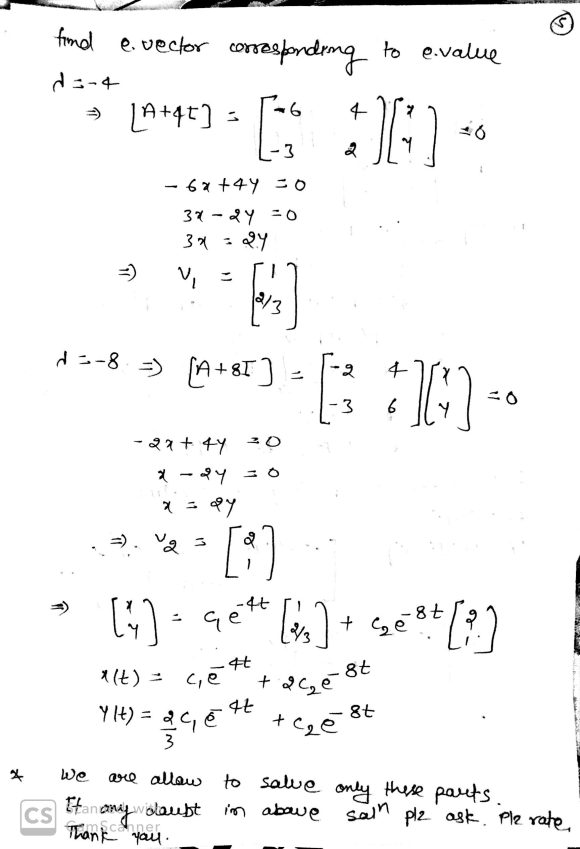 5
find e.vector corresponding to e.value
λ = -4
⇒ [A+4I] = [-6 4; -3 2] [x; y] = 0
-6x + 4y = 0
3x - 2y = 0
3x = 2y
⇒ V₁ = [1; 2/3]
λ = -8 ⇒ [A+8I] = [-2 4; -3 6] [x; y] = 0
-2x + 4y = 0
x - 2y = 0
x = 2y
⇒ V₂ = [2; 1]
⇒ [x; y] = c₁e^-4t [1; 2/3] + c₂e^-8t [2; 1]
x(t) = c₁e^-4t + 2c₂e^-8t
y(t) = 2/3 c₁e^-4t + c₂e^-8t
* We are allow to salve only these parts.
If any daubt in above salⁿ plz ask. Plz rate,
Thank yau.
CS Scanned with
CamScanner